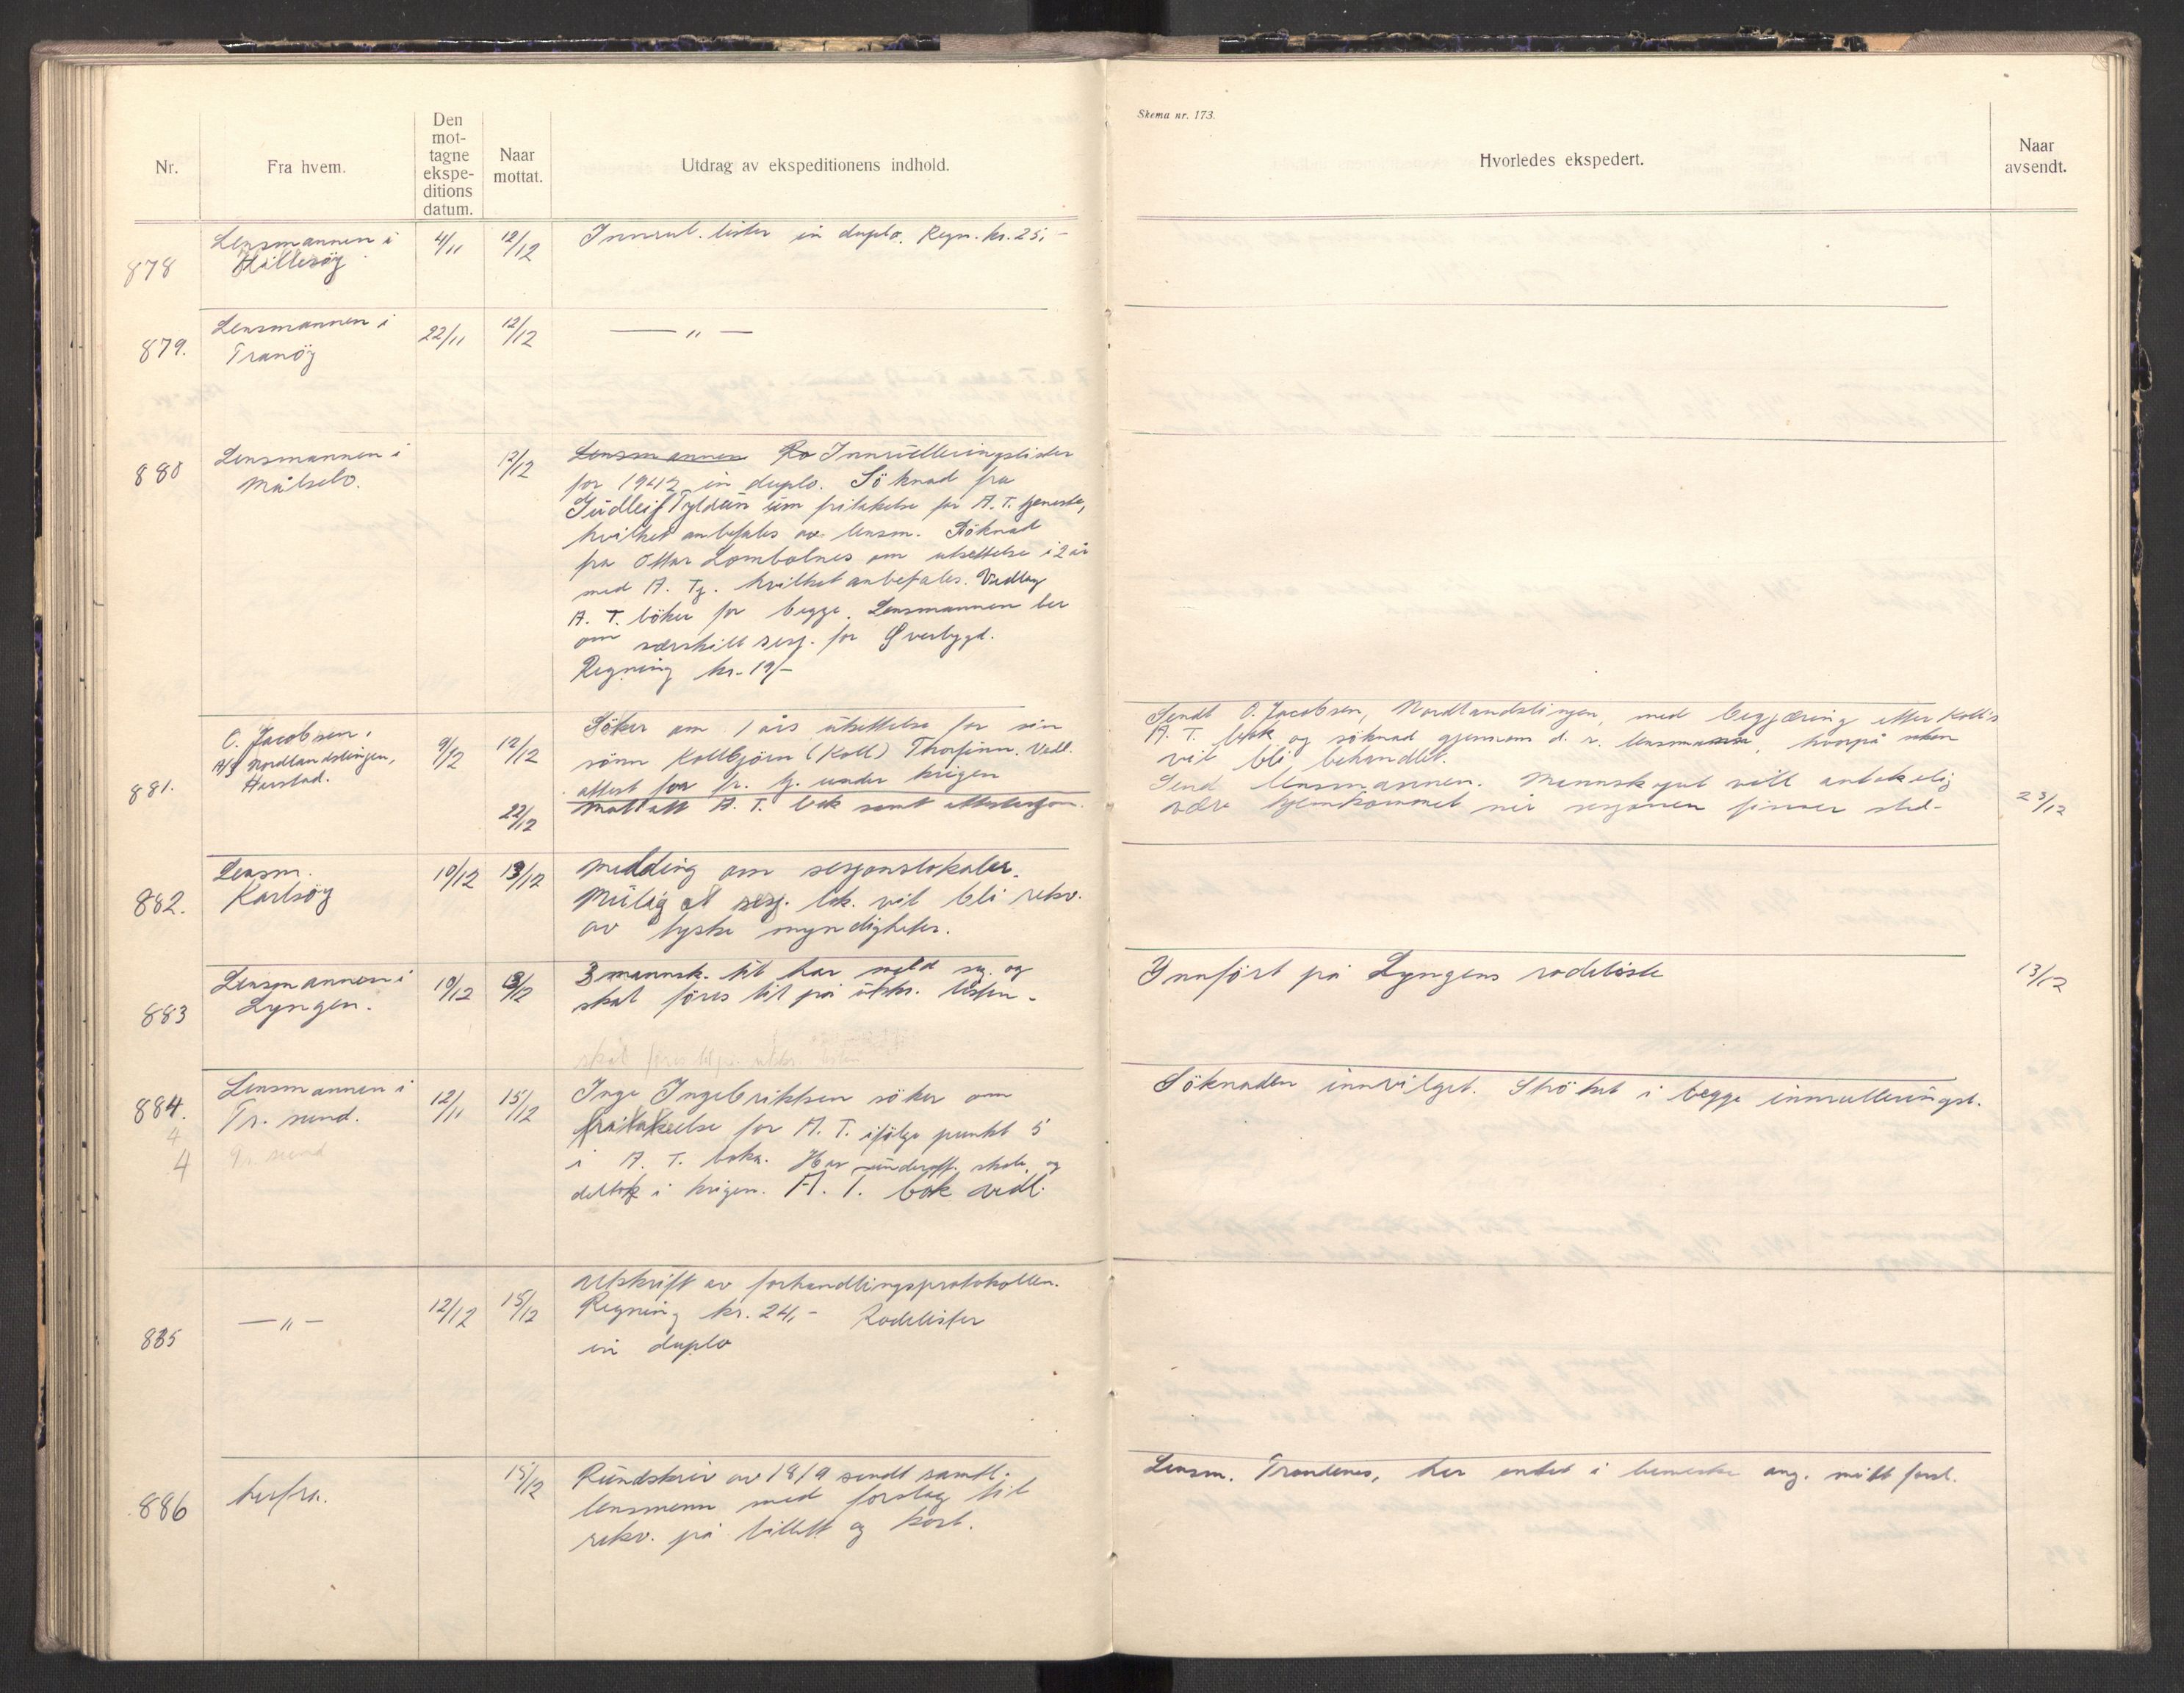 Skema nr. 173.
Nr.
Fra hvem.
Den
mot-
tagne
ekspe-
ditions
datum.
Naar
mottat.
Utdrag av ekspeditionens indhold.
Hvorledes ekspedert.
Naar
avsendt.
878
Lensmannen i
Hillesøy
4/11
12/12
Innrul. lister in duplo. Regn. kr. 25,-
879.
Lensmannen i
Tranöy
22/11
12/12
— " —
880
Lensmannen i
Målselv.
12/12
Lensmannen Ro Innrulleringslister
for 1942 in duplo. Söknad fra
om fritakelse for A. T. tjeneste,
hvilket anbefales av lensm. Söknad
fra Ottar Lombolnes om utsettelse i 2 år
med A. Tj. hvilket anbefales. Vedlag
A. T. böker for begge. Lensmannen ber
om særskilt sesj. for Överbygd.
Regning kr. 19,-
881.
O. Jacobsen,
A/S Nordlandslinjen,
Harstad.
9/12
12/12
Söker om 1 års utsettelse for sin
sönn Kollbjörn (Koll) Thorfinn. Vedl.
attest for fr. tj. under krigen
22/12
Mottatt A. T. bok samt attestasjon.
Sendt O. Jacobsen, Nordlandslinjen, med begjæring etter Koll's
A. T. bok og söknad gjennem d. v. lensmann, hvorpå saken
vil bli behandlet.
Send lensmannen. Mannskapet vill antakelig
være hjemkommet når sesjonen finner sted.
23/12
882.
Lensm.
Karlsöy
10/12
13/12
Melding om sesjonslokaler.
Mulig at sesj. lok. vil bli rekv.
av tyske myndigheter.
883
Lensmannen i
Lyngen.
10/12
13/12
3 mannsk. til har meld sig og
skal föres til på utkr. listen.
Innfört på Lyngens rodeliste
13/12
skal föres til på utkr. listen
884.
Lensmannen i
Tr. sund.
12/11
15/12
Inge Ingebriktsen söker om
fritakelse for A. T. ifölge punkt 5
i A. T. boka. Har underoff. skole og
deltok i krigen. A. T. bok vedl.
Söknaden innvilget. Ströket i begge innrulleringsl.
4
4
Tr. sund
885
— " —
12/12
15/12
Utskrift av forhandlingsprotokollen.
Regning kr. 24,- Rodelister
in duplo
886
herfra.
15/12
Rundskriv av 18/9 sendt samtl.
lensmenn med forslag til
rekv. på billett og kost.
Lensm. Trondenes, har intet i bemerke ang. mitt forsl.